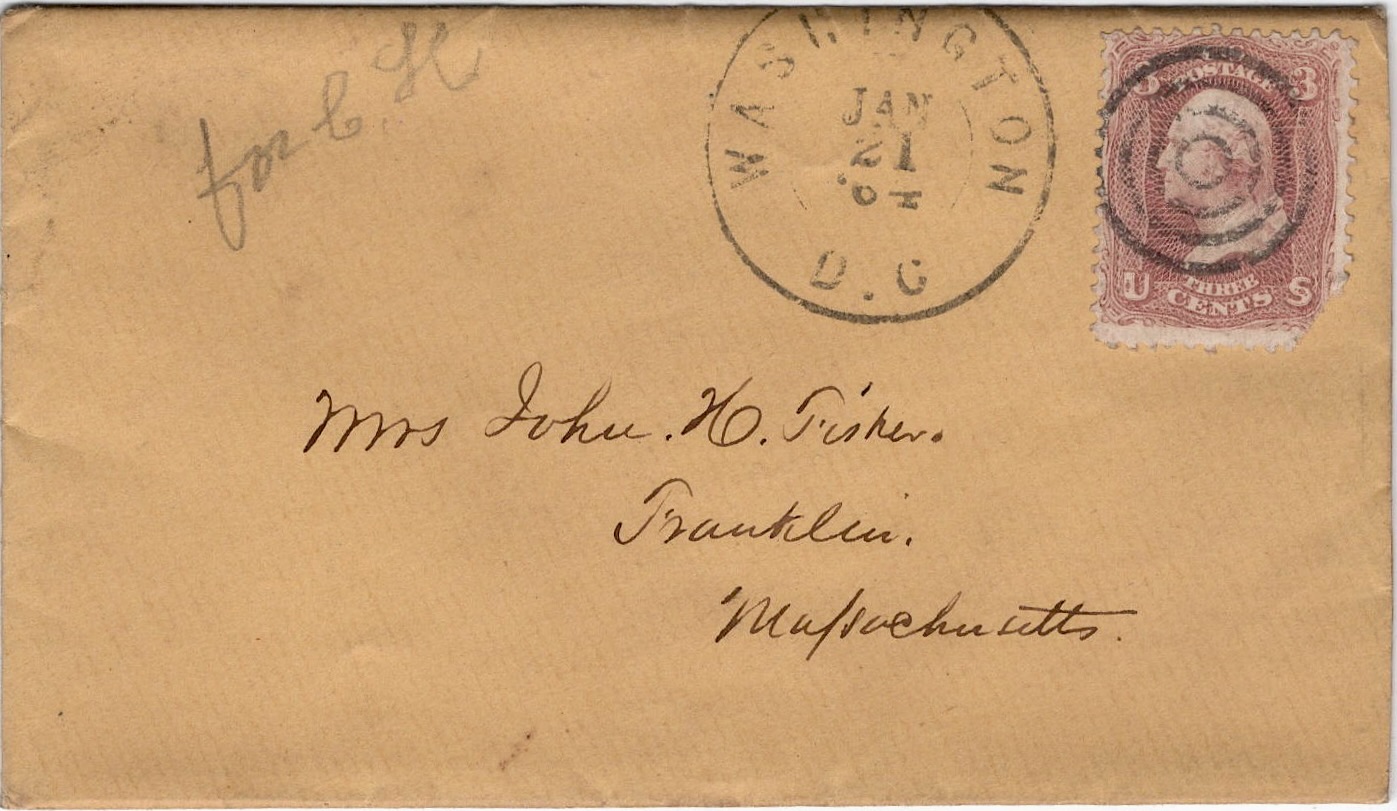 for C. H
WASHINGTON
JAN
21
64
D.C
3 POSTAGE 3
THREE
U CENTS S
Mrs John. H. Fisher.
Franklin.
Massachusetts.